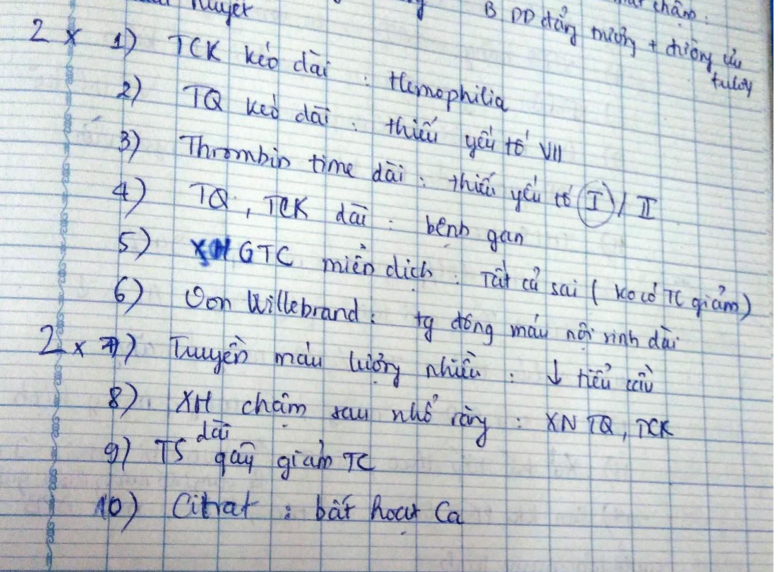 huyết
chậm.
B DD đẳng trương + đường ưu trương
2 x 1) TCK kéo dài : Hemophilia
2) TQ kéo dài : thiếu yếu tố VII
3) Thrombin time dài : thiếu yếu tố I / II
4) TQ, TCK dài : bệnh gan
5) XHGTC miễn dịch : Tất cả sai ( ko có TC giảm )
6) Von Willebrand : tg đông máu nội sinh dài
2 x 7) Truyền máu lượng nhiều : ↓ tiểu cầu
8) XH chậm sau nhổ răng : XN TQ, TCK
9) TS dài gãy giảm TC
10) Citrat : bất hoạt Ca